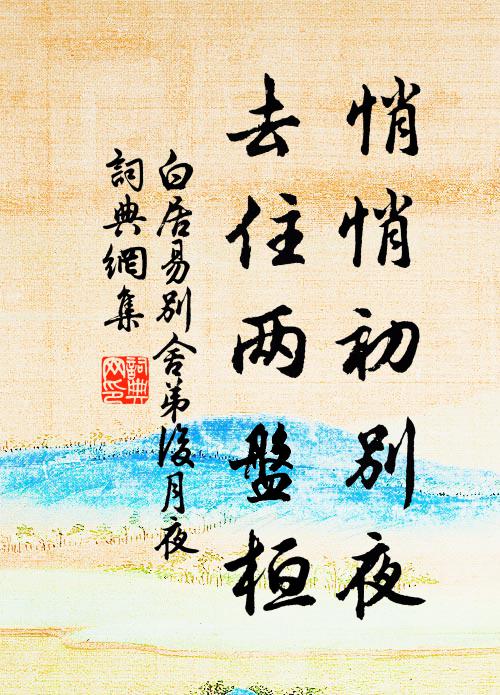 悄悄初別夜
去住两盤桓
白居易別舍弟後月夜
詞典網集
詞典网印